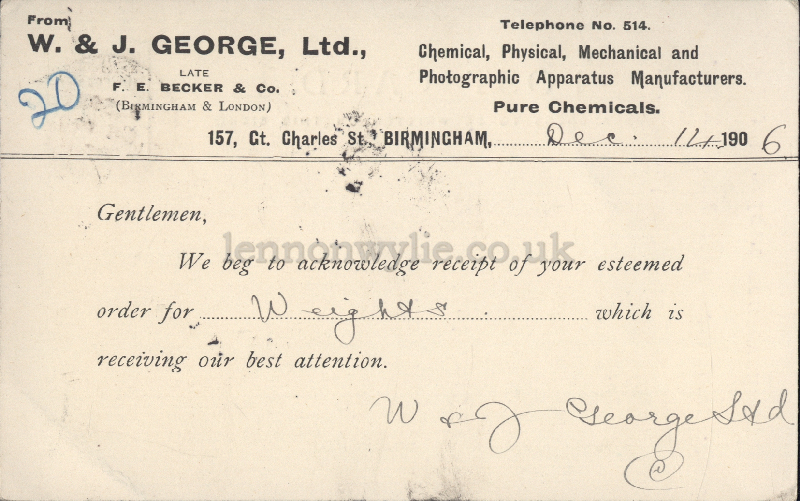 From
W. & J. GEORGE, Ltd.,
LATE
F. E. BECKER & Co.
(BIRMINGHAM & LONDON)
20
Telephone No. 514.
Chemical, Physical, Mechanical and
Photographic Apparatus Manufacturers.
Pure Chemicals.
157, Gt. Charles St. BIRMINGHAM, Dec. 14 1906
Gentlemen,
lennonwylie.co.uk
We beg to acknowledge receipt of your esteemed
order for Weights which is
receiving our best attention.
W & J George Ltd